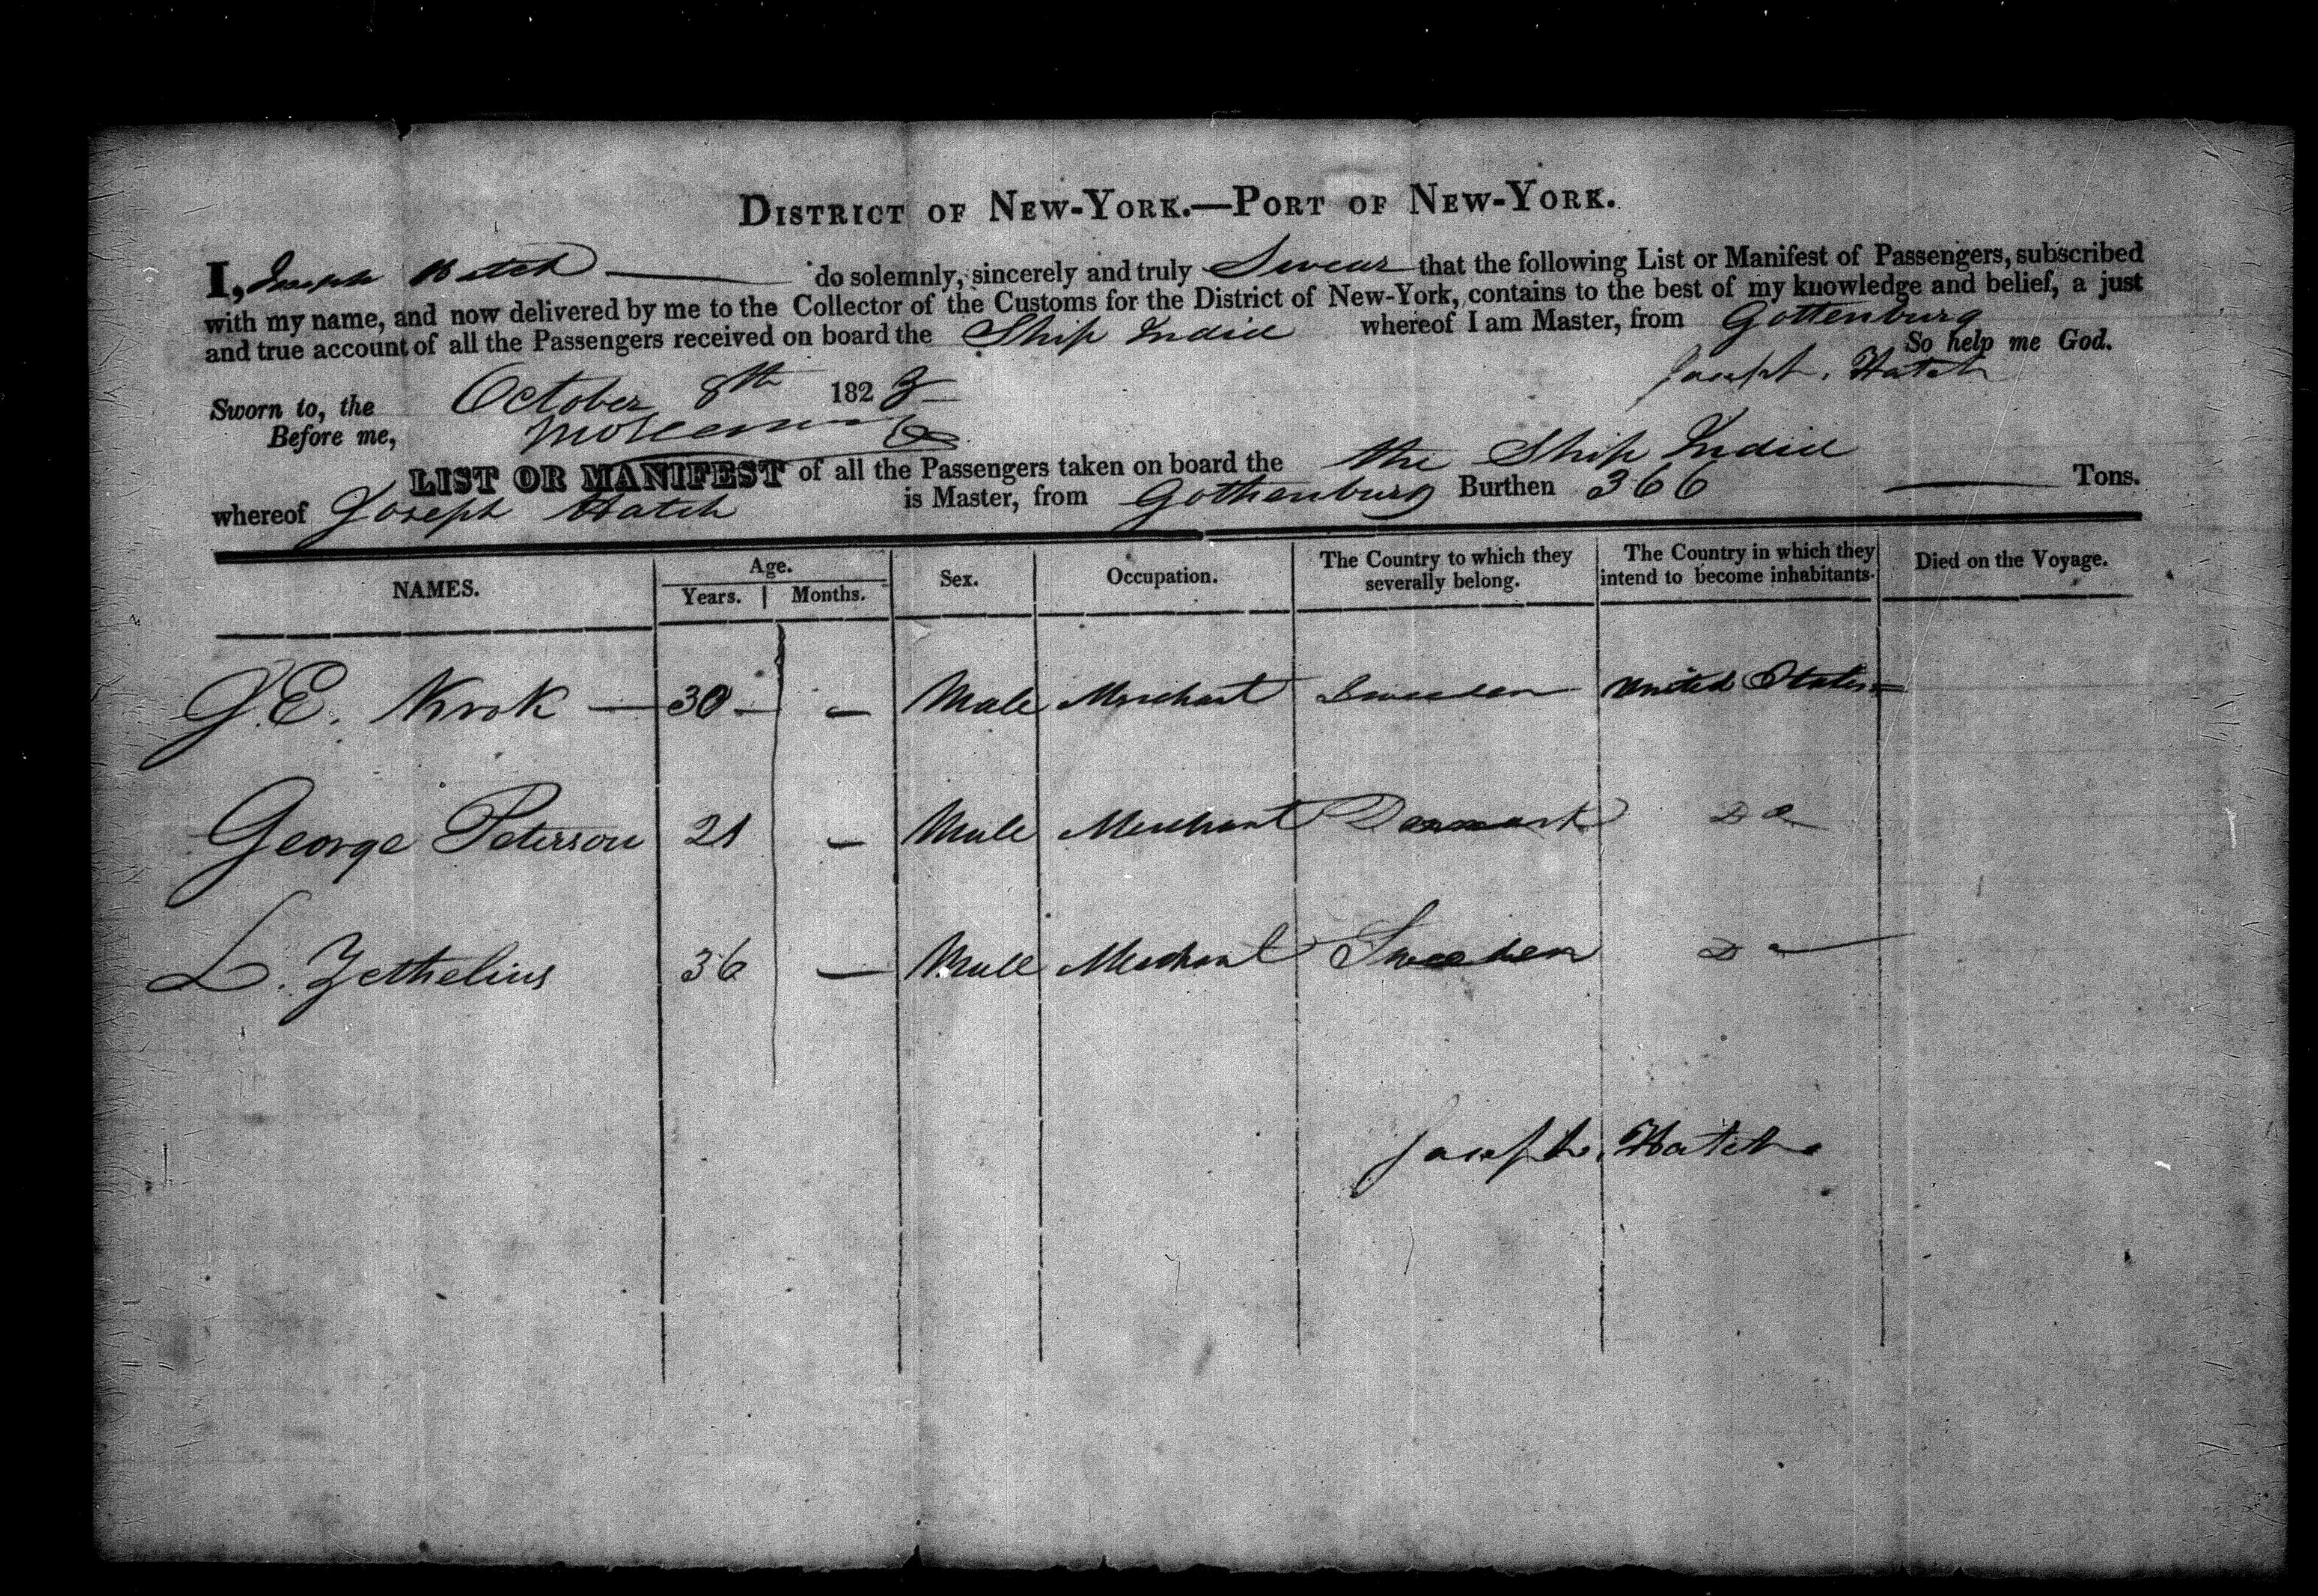 DISTRICT OF NEW-YORK.—PORT OF NEW-YORK.
I, Joseph Hatch do solemnly, sincerely and truly Swear that the following List or Manifest of Passengers, subscribed
with my name, and now delivered by me to the Collector of the Customs for the District of New-York, contains to the best of my knowledge and belief, a just
and true account of all the Passengers received on board the Ship India whereof I am Master, from Gottenburg
So help me God.
Sworn to, the October 8th 1823 Joseph. Hatch
Before me,
LIST OR MANIFEST of all the Passengers taken on board the the Ship India
whereof Joseph Hatch is Master, from Gothenburg Burthen 366 Tons.
NAMES. Age. Years. Months. Sex. Occupation. The Country to which they severally belong. The Country in which they intend to become inhabitants. Died on the Voyage.
G. E. Krok — 30 — — Male Merchant Sweeden United States
George Peterson 21 — Male Merchant Denmark Do
L. Zethelius 36 — Male Merchant Sweeden Do
Joseph. Hatch